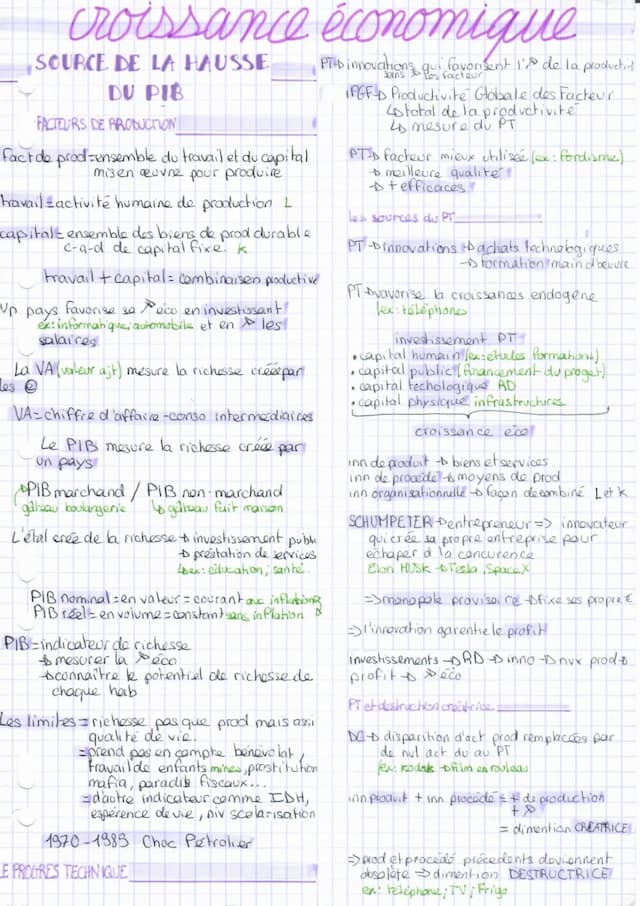 croissance économique
SOURCE DE LA HAUSSE
DU PIB
FACTEURS DE PRODUCTION
Fact de prod = ensemble du travail et du capital
mis en œuvre pour produire
travail = activité humaine de production L
capital = ensemble des biens de prod durable
c-a-d de capital fixe. K
travail + capital = combinaison productive
Un pays favorise sa ↗ éco en investissant
ex: informatique, automobile et en ↗ les
salaires
La VA (valeur ajt) mesure la richesse créée par
les ⓔ
VA = chiffre d'affaire - conso intermédiaires
Le PIB mesure la richesse créée par
un pays
PIB marchand / PIB non-marchand
gâteau boulangerie ↳ gâteau fait maison
L'état crée de la richesse → investissement public
→ prestation de services
↳ ex: éducation, santé
PIB nominal = en valeur = courant avec inflation
PIB réel = en volume = constant sans inflation
PIB = indicateur de richesse
↳ mesurer la ↗ éco
↳ connaître le potentiel de richesse de
chaque hab
Les limites = richesse pas que prod mais assi
qualité de vie.
= prend pas en compte bénévolat,
travail de enfants mines, prostitution
mafia, paradis fiscaux...
= d'autre indicateur comme IDH,
espérence de vie, niv scolarisation
1970-1985 Choc Petrolier
LE PROGRES TECHNIQUE
PT → innovations qui favorisent l'↗ de la productivi
sans ↗ les facteur
PGF → Productivité Globale des Facteur
↳ total de la productivité
↳ mesure du PT
PT → facteur mieux utilisée (ex: fordisme)
→ meilleure qualité
→ + efficaces
les sources du PT
PT → innovations → achats technologiques
→ formation main d'œuvre
PT → favorise la croissances endogène
ex: téléphones
investissement PT
• capital humain (ex: etudes formations)
• capital public (financement du projet)
• capital techologique RD
• capital physique infrastructures
croissance eco
inn de produit → biens et services
inn de procédé → moyens de prod
inn organisationnelle → façon de combiné L et K
SCHUMPETER → entrepreneur => innovateur
qui crée sa propre entreprise pour
échaper à la concurence
Elon MUSK → Tesla, Space X
=> monopole provisoire → fixe ses propre €
=> l'innovation garentie le profit
investissements → RD → inno → nvx prod →
profit → ↗ éco
PT et destruction créatrice
DC → disparition d'act prod remplacées par
de nvl act du au PT
ex: kodak → film en rouleau
inn produit + inn procédé = + de production
+ ↗
= dimention CREATRICE
=> prod et procédé précedents doviennent
obsolète => dimention DESTRUCTRICE
ex: téléphone, TV, Frigo